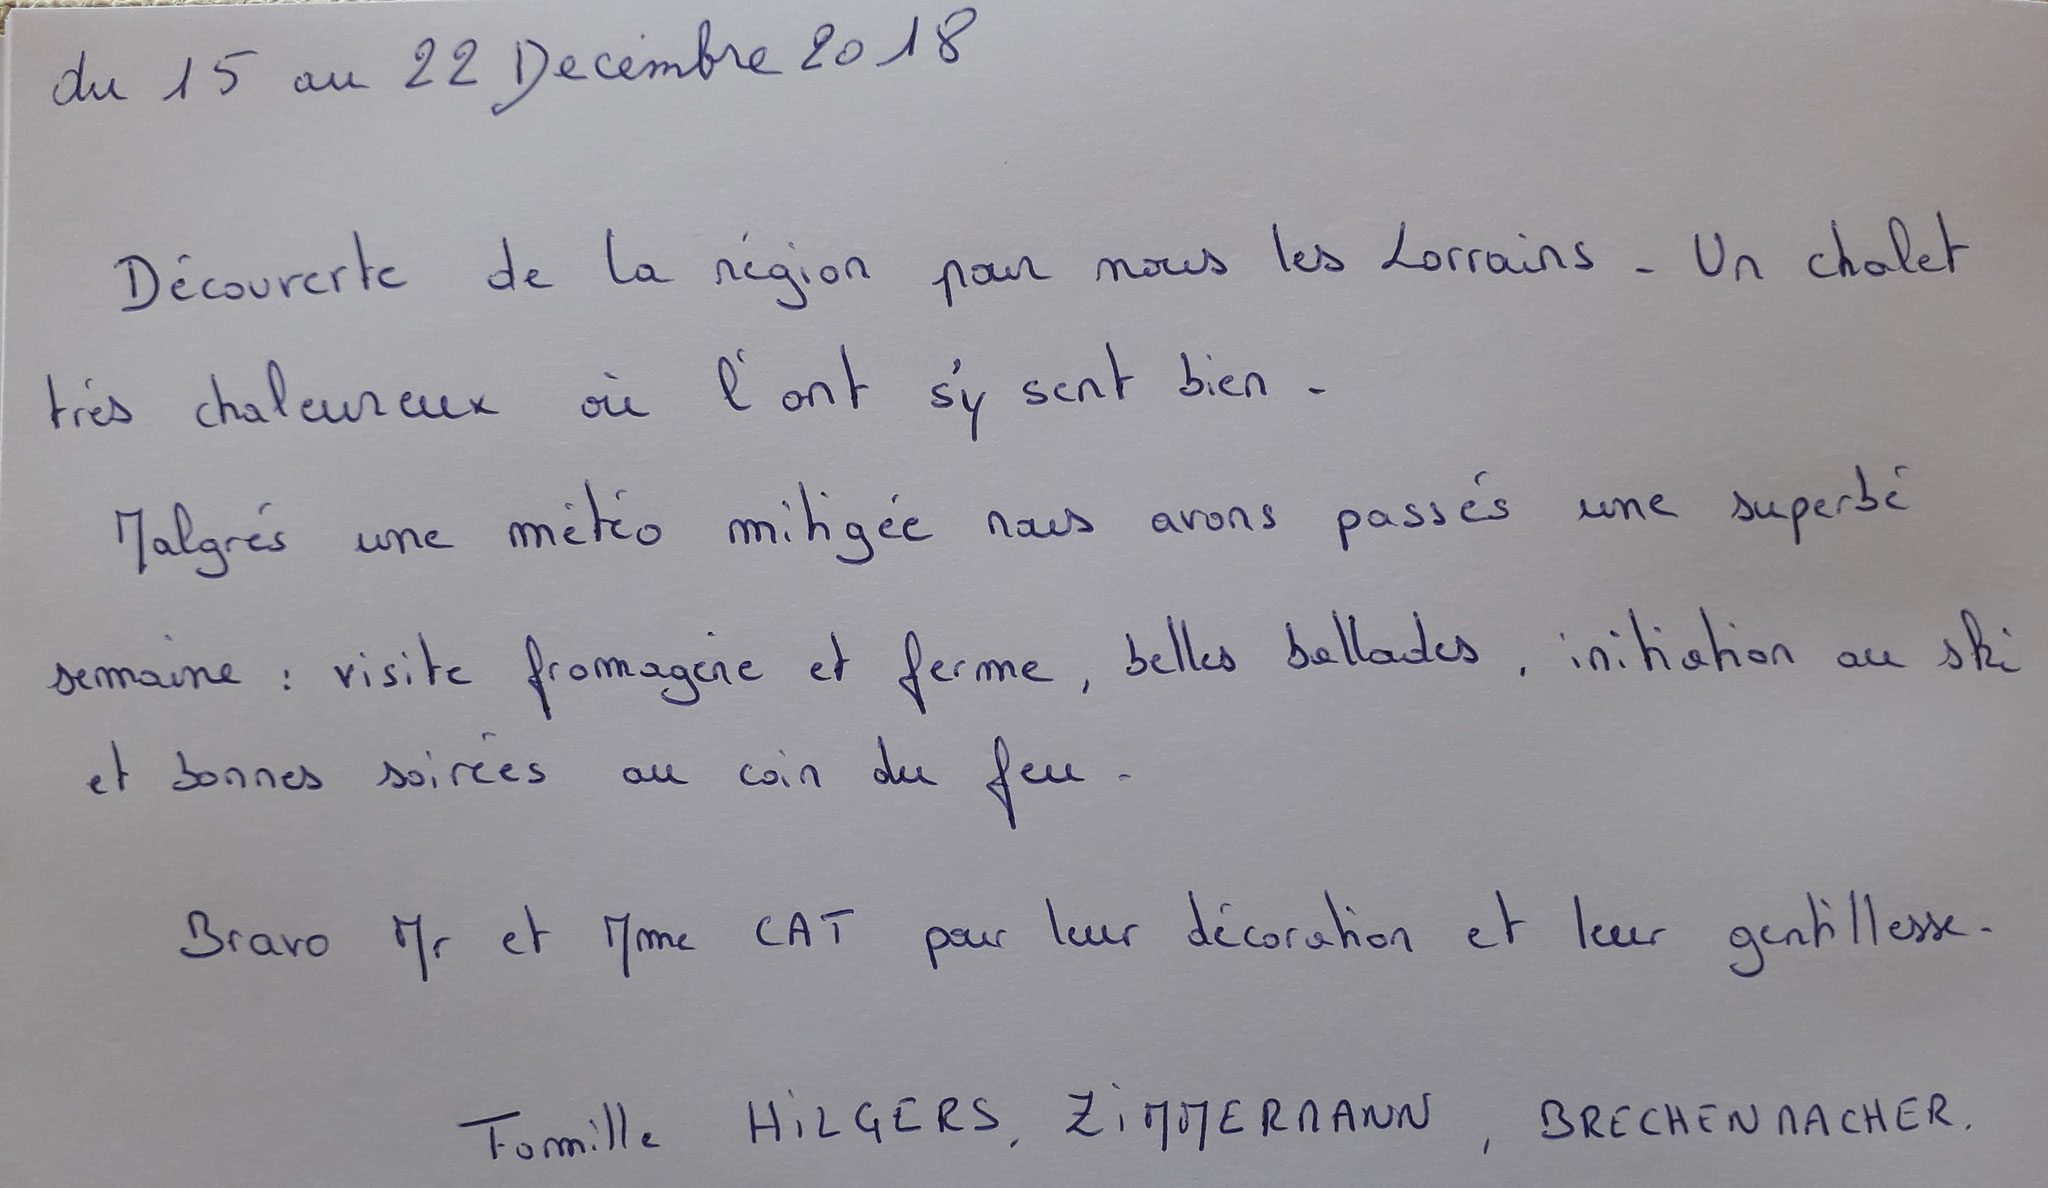 du 15 au 22 Décembre 2018
Découverte de la région pour nous les Lorrains - Un chalet
trés chaleureux où l'ont s'y sent bien -
Malgrés une météo mitigée nous avons passés une superbé
semaine : visite fromagerie et ferme, belles ballades, initiation au ski
et bonnes soirées au coin du feu -
Bravo Mr et Mme CAT pour leur décoration et leur gentillesse -
Famille HiLGERS, ZiMMERMANN, BRECHENMACHER.